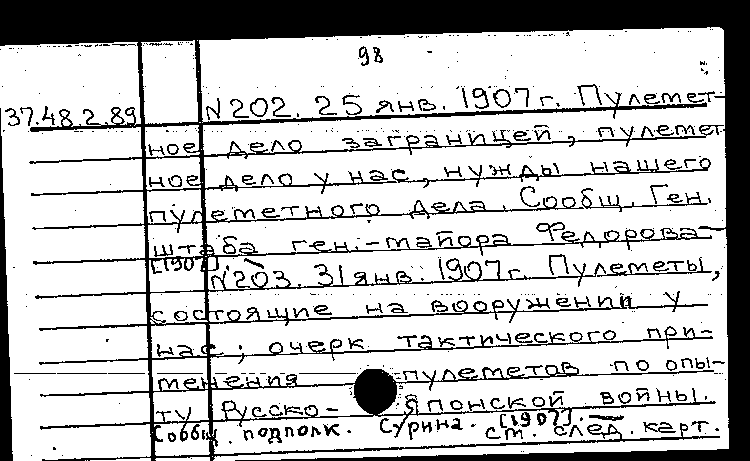 98
37.48.2.89
N 202. 25 янв. 1907 г. Пулемет-
ное дело заграницей, пулемет
ное дело у нас, нужды нашего
пулеметного дела. Сообщ. Ген.
штаба ген.-майора Федорова-
[1907].
N 203. 31 янв. 1907 г. Пулеметы,
состоящие на вооружении у
нас; очерк тактического при-
менения пулеметов по опы-
ту Русско-Японской войны.
Сообщ. подполк. Сурина. [1907]. -
См. след. карт.